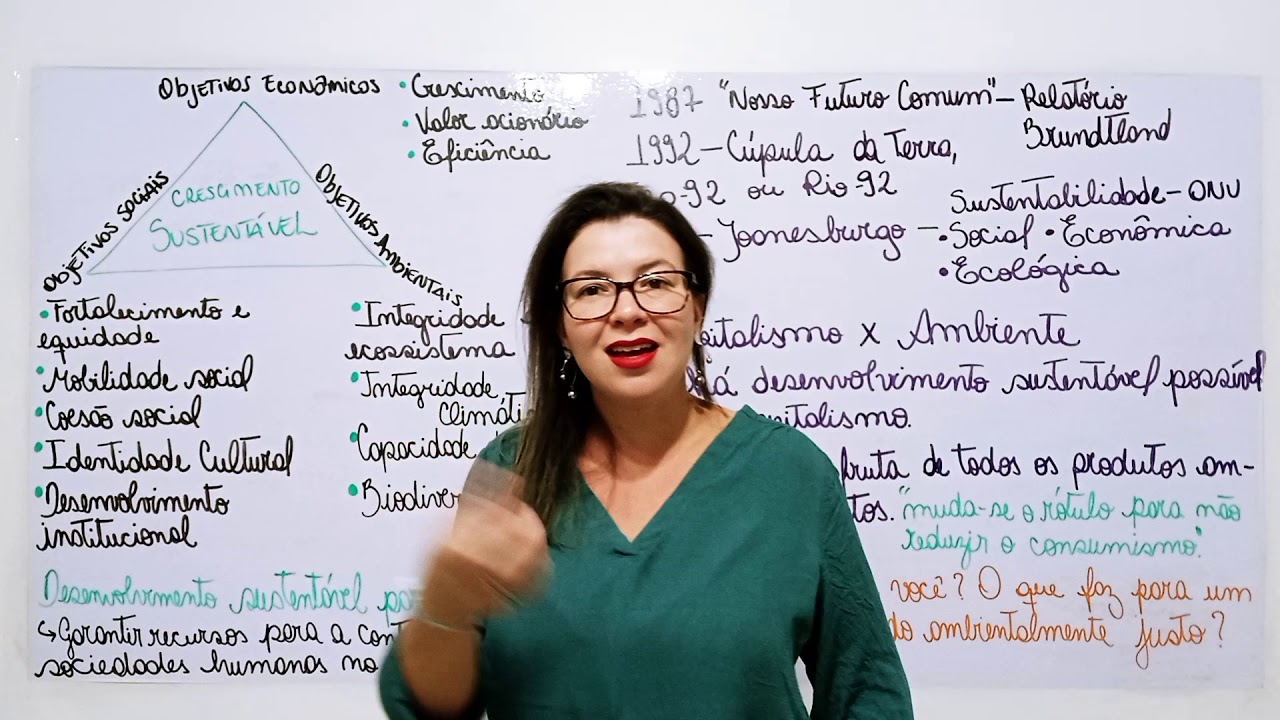 Objetivos Econômicos
• Crescimento
• Valor acionário
• Eficiência
Objetivos sociais
Crescimento
Sustentável
Objetivos Ambientais
• Fortalecimento e
equidade
• Mobilidade social
• Coesão social
• Identidade Cultural
• Desenvolvimento
institucional
• Integridade
ecossistema
• Integridade
• Capacidade
Desenvolvimento sustentável
↳ Garantir recursos para a
sociedades humanas
1987 "Nosso Futuro Comum" - Relatório
Brundtland
1992 - Cúpula da Terra,
ou Rio-92
- Joanesburgo -
Sustentabilidade - ONU
• Social • Econômica
• Ecológica
x Ambiente
desenvolvimento sustentável possível
de todos os produtos am-
"muda-se o rótulo para não
reduzir o consumismo."
você? O que faz para um
ambientalmente justo?